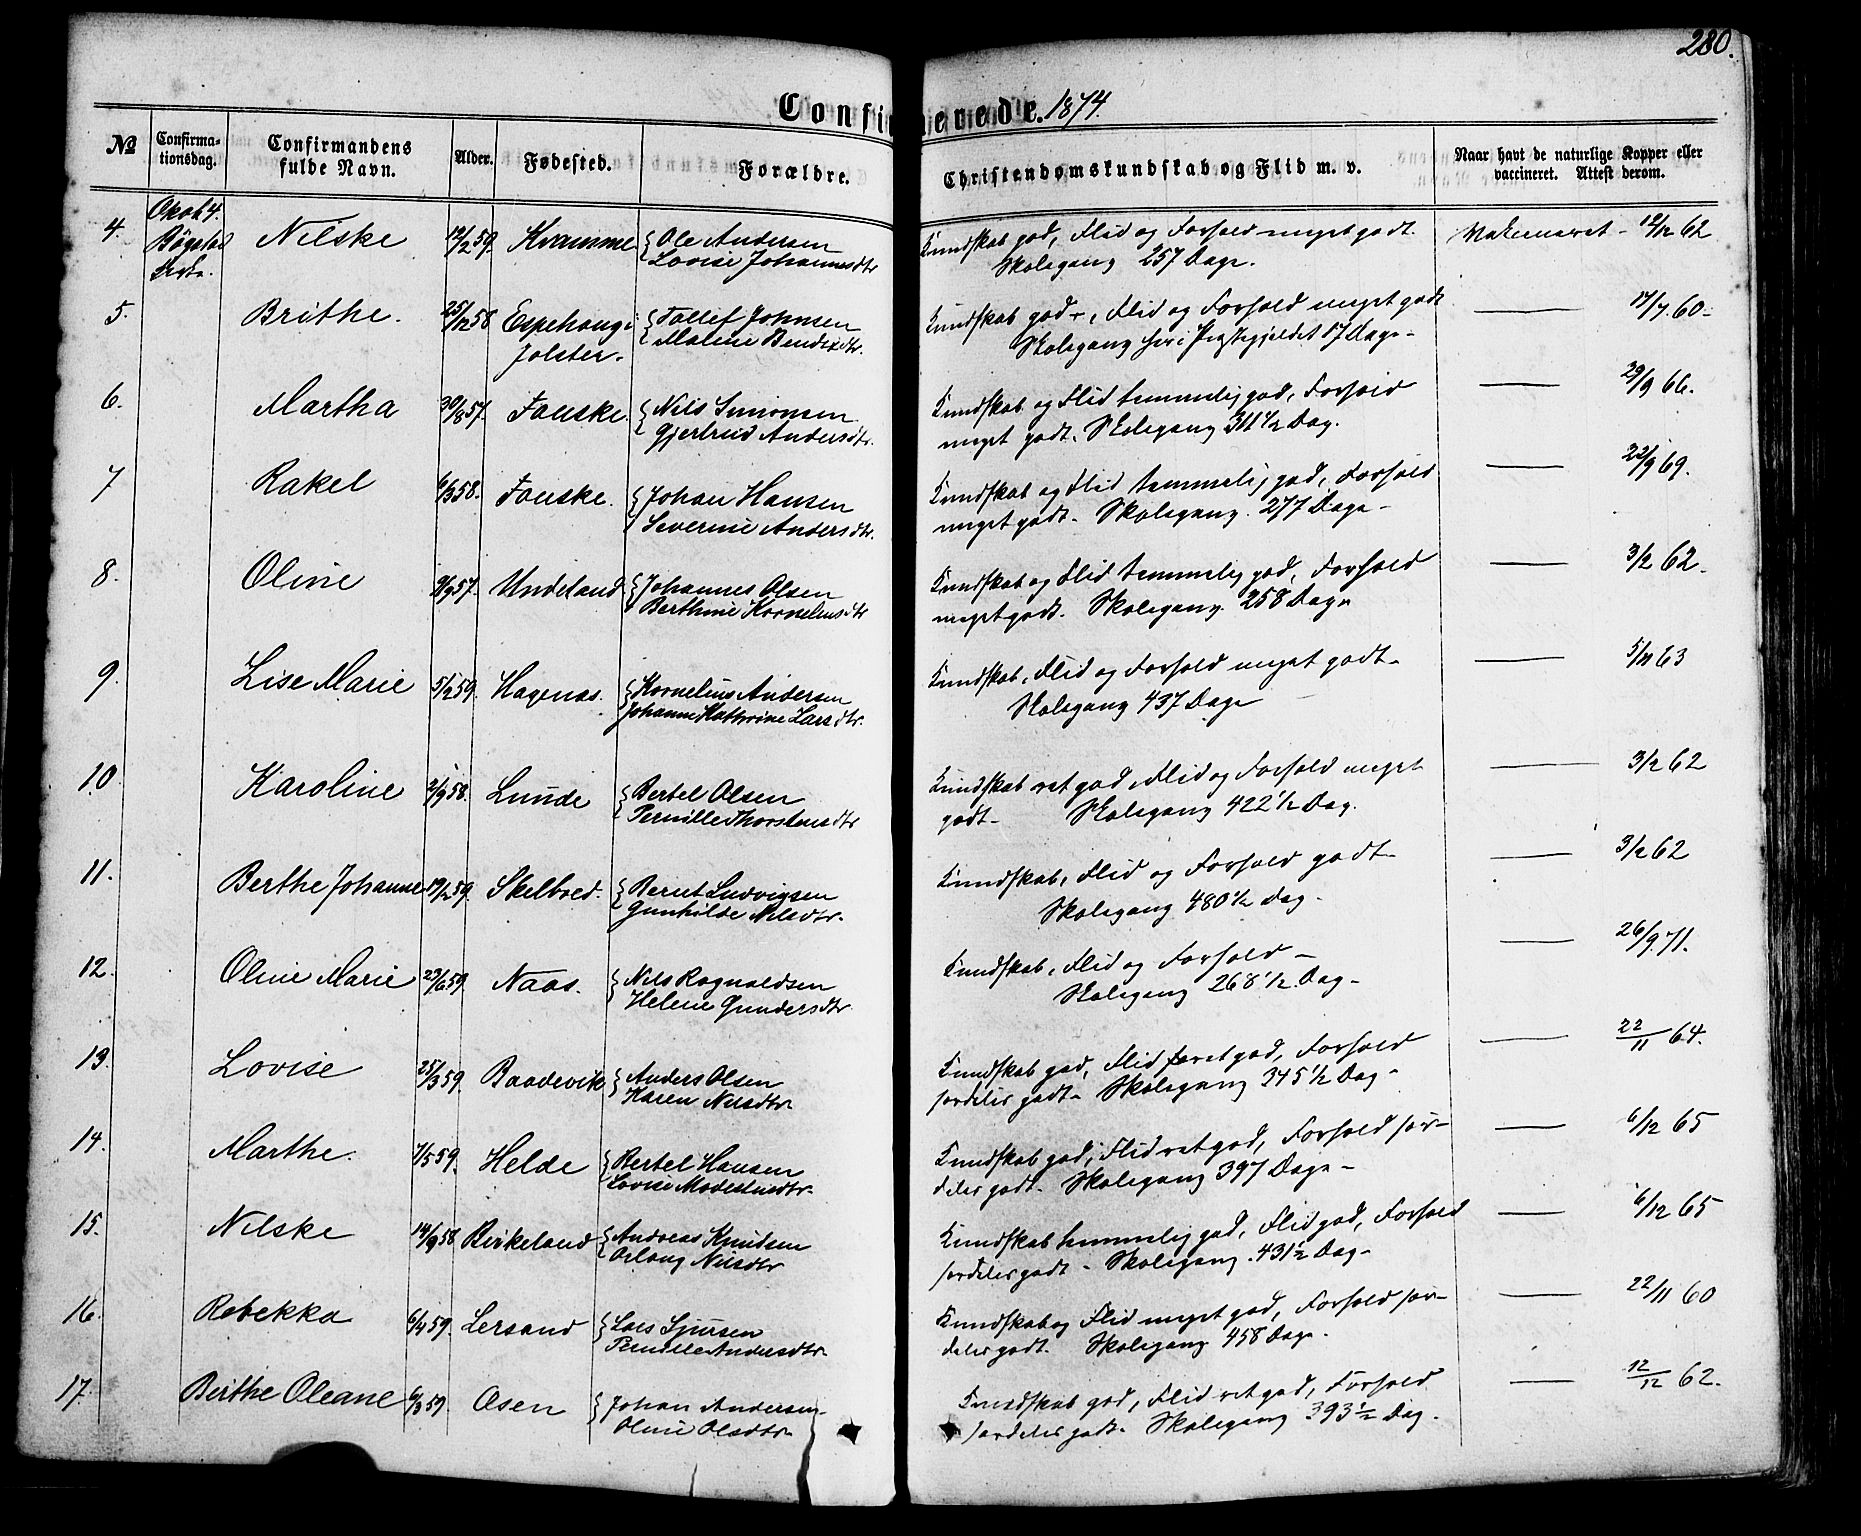 280.
Confirmerede. 1874.
№ Confirma-tionsdag. Confirmandens fulde Navn. Alder. Fødested. Forældre. Christendomskundskab og Flid m. v. Naar havt de naturlige Kopper eller vaccineret. Attest derom.
4. Nilske 12/2 59. Kvamme Ole Andersen Kundskab god, Flid og Forhold meget godt. 12/12 62
Lovise Johannesdtr Skolegang 257 Dage.
5. Brithe. 25/12 58 Espehaug i Tollef Johnsen Kundskab god, Flid og Forhold meget godt — 17/7 60
Jolster. Maline Bendixdtr. Skolegang her i Præstegjeldet 17 Dage
6. Martha 30/8 57. Fauske. Nils Simonsen Kundskab og Flid temmelig god, Forhold — 29/9 66.
Gjertrud Andersdtr. meget godt. Skolegang 311 1/2 Dag.
7 Rakel 6/3 58. Fauske. Johan Hansen Kundskab og Flid temmelig god, Forhold — 22/9 69.
Severine Andersdtr. meget godt. Skolegang. 277 Dage
8. Oline 9/9 57. Undeland Johannes Olsen Kundskab og Flid temmelig god, Forhold — 3/2 62.
Berthine Korneliusdtr meget godt. Skolegang. 258 Dage
9. Lise Marie 5/2 59. Hagenas. Kornelius Andersen Kundskab, Flid og Forhold meget godt — 5/11 63
Johanne Kathrine Larsdtr. Skolegang 437 Dage
10. Karoline 2/9 58. Lunde Bertel Olsen Kundskab ret god, Flid og Forhold meget — 3/2 62
Pernille Thorstensdtr godt. Skolegang 422 1/2 Dag.
11. Berthe Johanne 19/2 59. Skelbred. Bernt Ludvigsen Kundskab, Flid og Forhold godt — 3/2 62
Gunhilde Nilsdtr. Skolegang 480 1/2 Dag.
12. Oline Marie 23/6 59 Naas. Nils Ragnvaldsen Kundskab, Flid og Forhold — — 26/9 71.
Helene Gundersdtr Skolegang 268 1/2 Dag
13. Lovise 25/3 59. Baadevik Anders Olsen Kundskab god, Flid ret god, Forhold — 22/11 64.
Karen Nilsdtr særdeles godt. Skolegang 345 1/2 Dag
14. Marthe. 7/5 59. Helde Bertel Hansen Kundskab god, Flid ret god, Forhold sær- — 6/12 65
Lovise Modestusdtr. deles godt. Skolegang 397 Dage
15. Nilske 14/9 58. Birkeland Andreas Knudsen Kundskab temmelig god, Flid god, Forhold — 6/12 65
Nilsdtr særdeles godt. Skolegang 431 1/2 Dag
16. Rebekka 6/4 59. Lersand Lars Sjursen Kundskab og Flid meget god, Forhold sær- — 22/11 60
Pernille Andersdtr deles godt. Skolegang 458 Dage.
17. Berthe Oleane 6/3 59. Osen Johan Andersen Kundskab god, Flid ret god, Forhold — 12/12 62.
Oline Olsdtr særdeles godt. Skolegang 393 1/2 Dag.